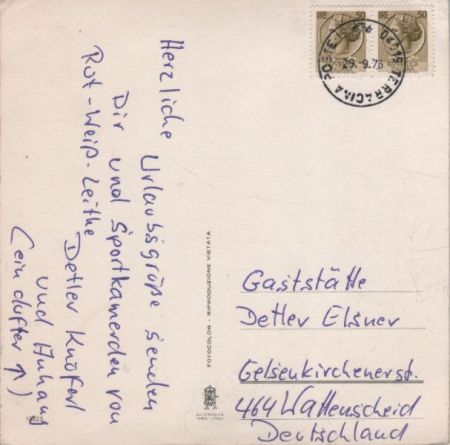 Herzliche Urlaubsgrüße senden
Dir und Sportkamerden von
Rot-Weiß-Leithe
Detlev Knöferl
und Anhang
(ein dufter ↑)
50
50
POSTE 04019 TERRACINA
29.-9.73
FOTOCOLOR - RIPRODUZIONE VIETATA
Gaststätte
Detlev Elsner
Gelsenkirchenerst.
464 Wattenscheid
Deutschland